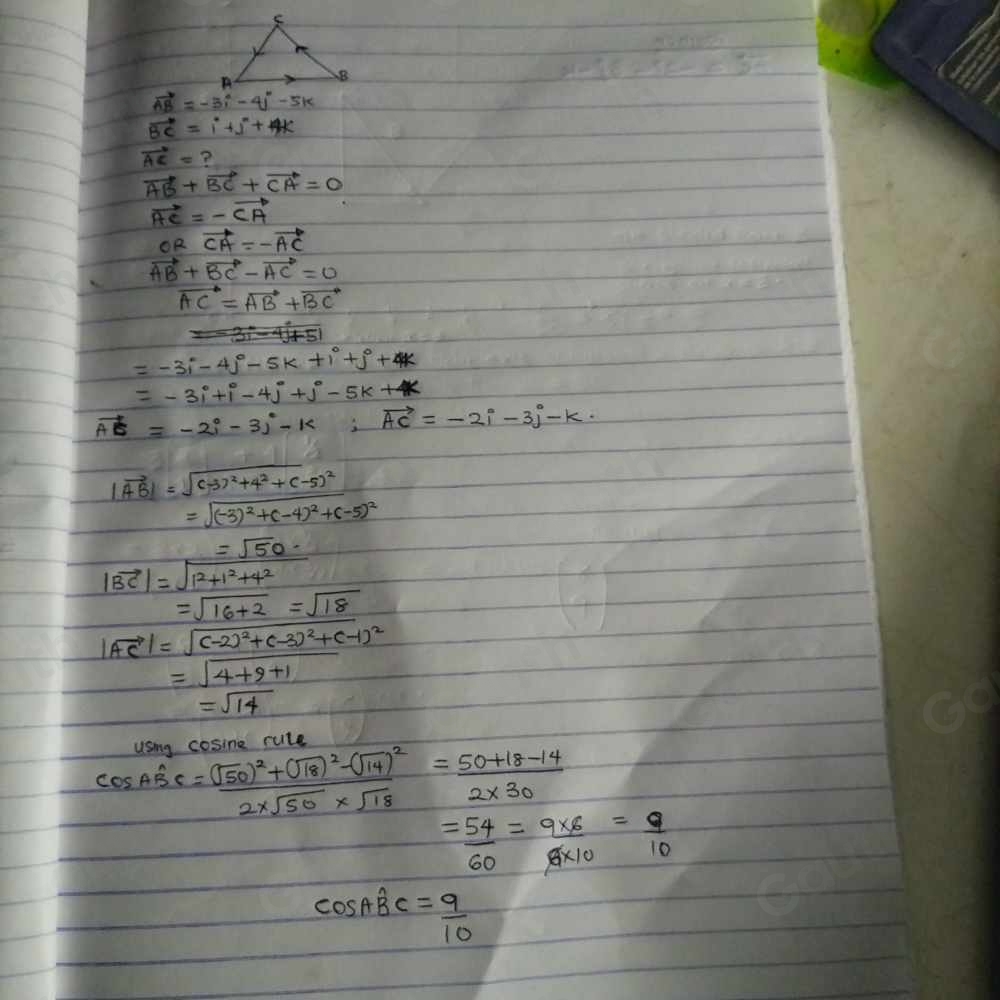 C
A B
AB = -3i - 4j - 5k
BC = i + j + 4k
AC = ?
AB + BC + CA = 0
AC = -CA
OR CA = -AC
AB + BC - AC = 0
AC = AB + BC
= -3i - 4j + 5
= -3i - 4j - 5k + i + j + 4k
= -3i + i - 4j + j - 5k + 4k
AC = -2i - 3j - k ; AC = -2i - 3j - k.
|AB| = √(-3)²+4²+(-5)²
= √(-3)²+(-4)²+(-5)²
= √50.
|BC| = √1²+1²+4²
= √16+2 = √18
|AC| = √(-2)²+(-3)²+(-1)²
= √4+9+1
= √14
using cosine rule
COSAB̂C = (√50)²+(√18)²-(√14)² / 2×√50 × √18 = 50+18-14 / 2×30
= 54/60 = 9×6 / 6×10 = 9/10
COSAB̂C = 9/10